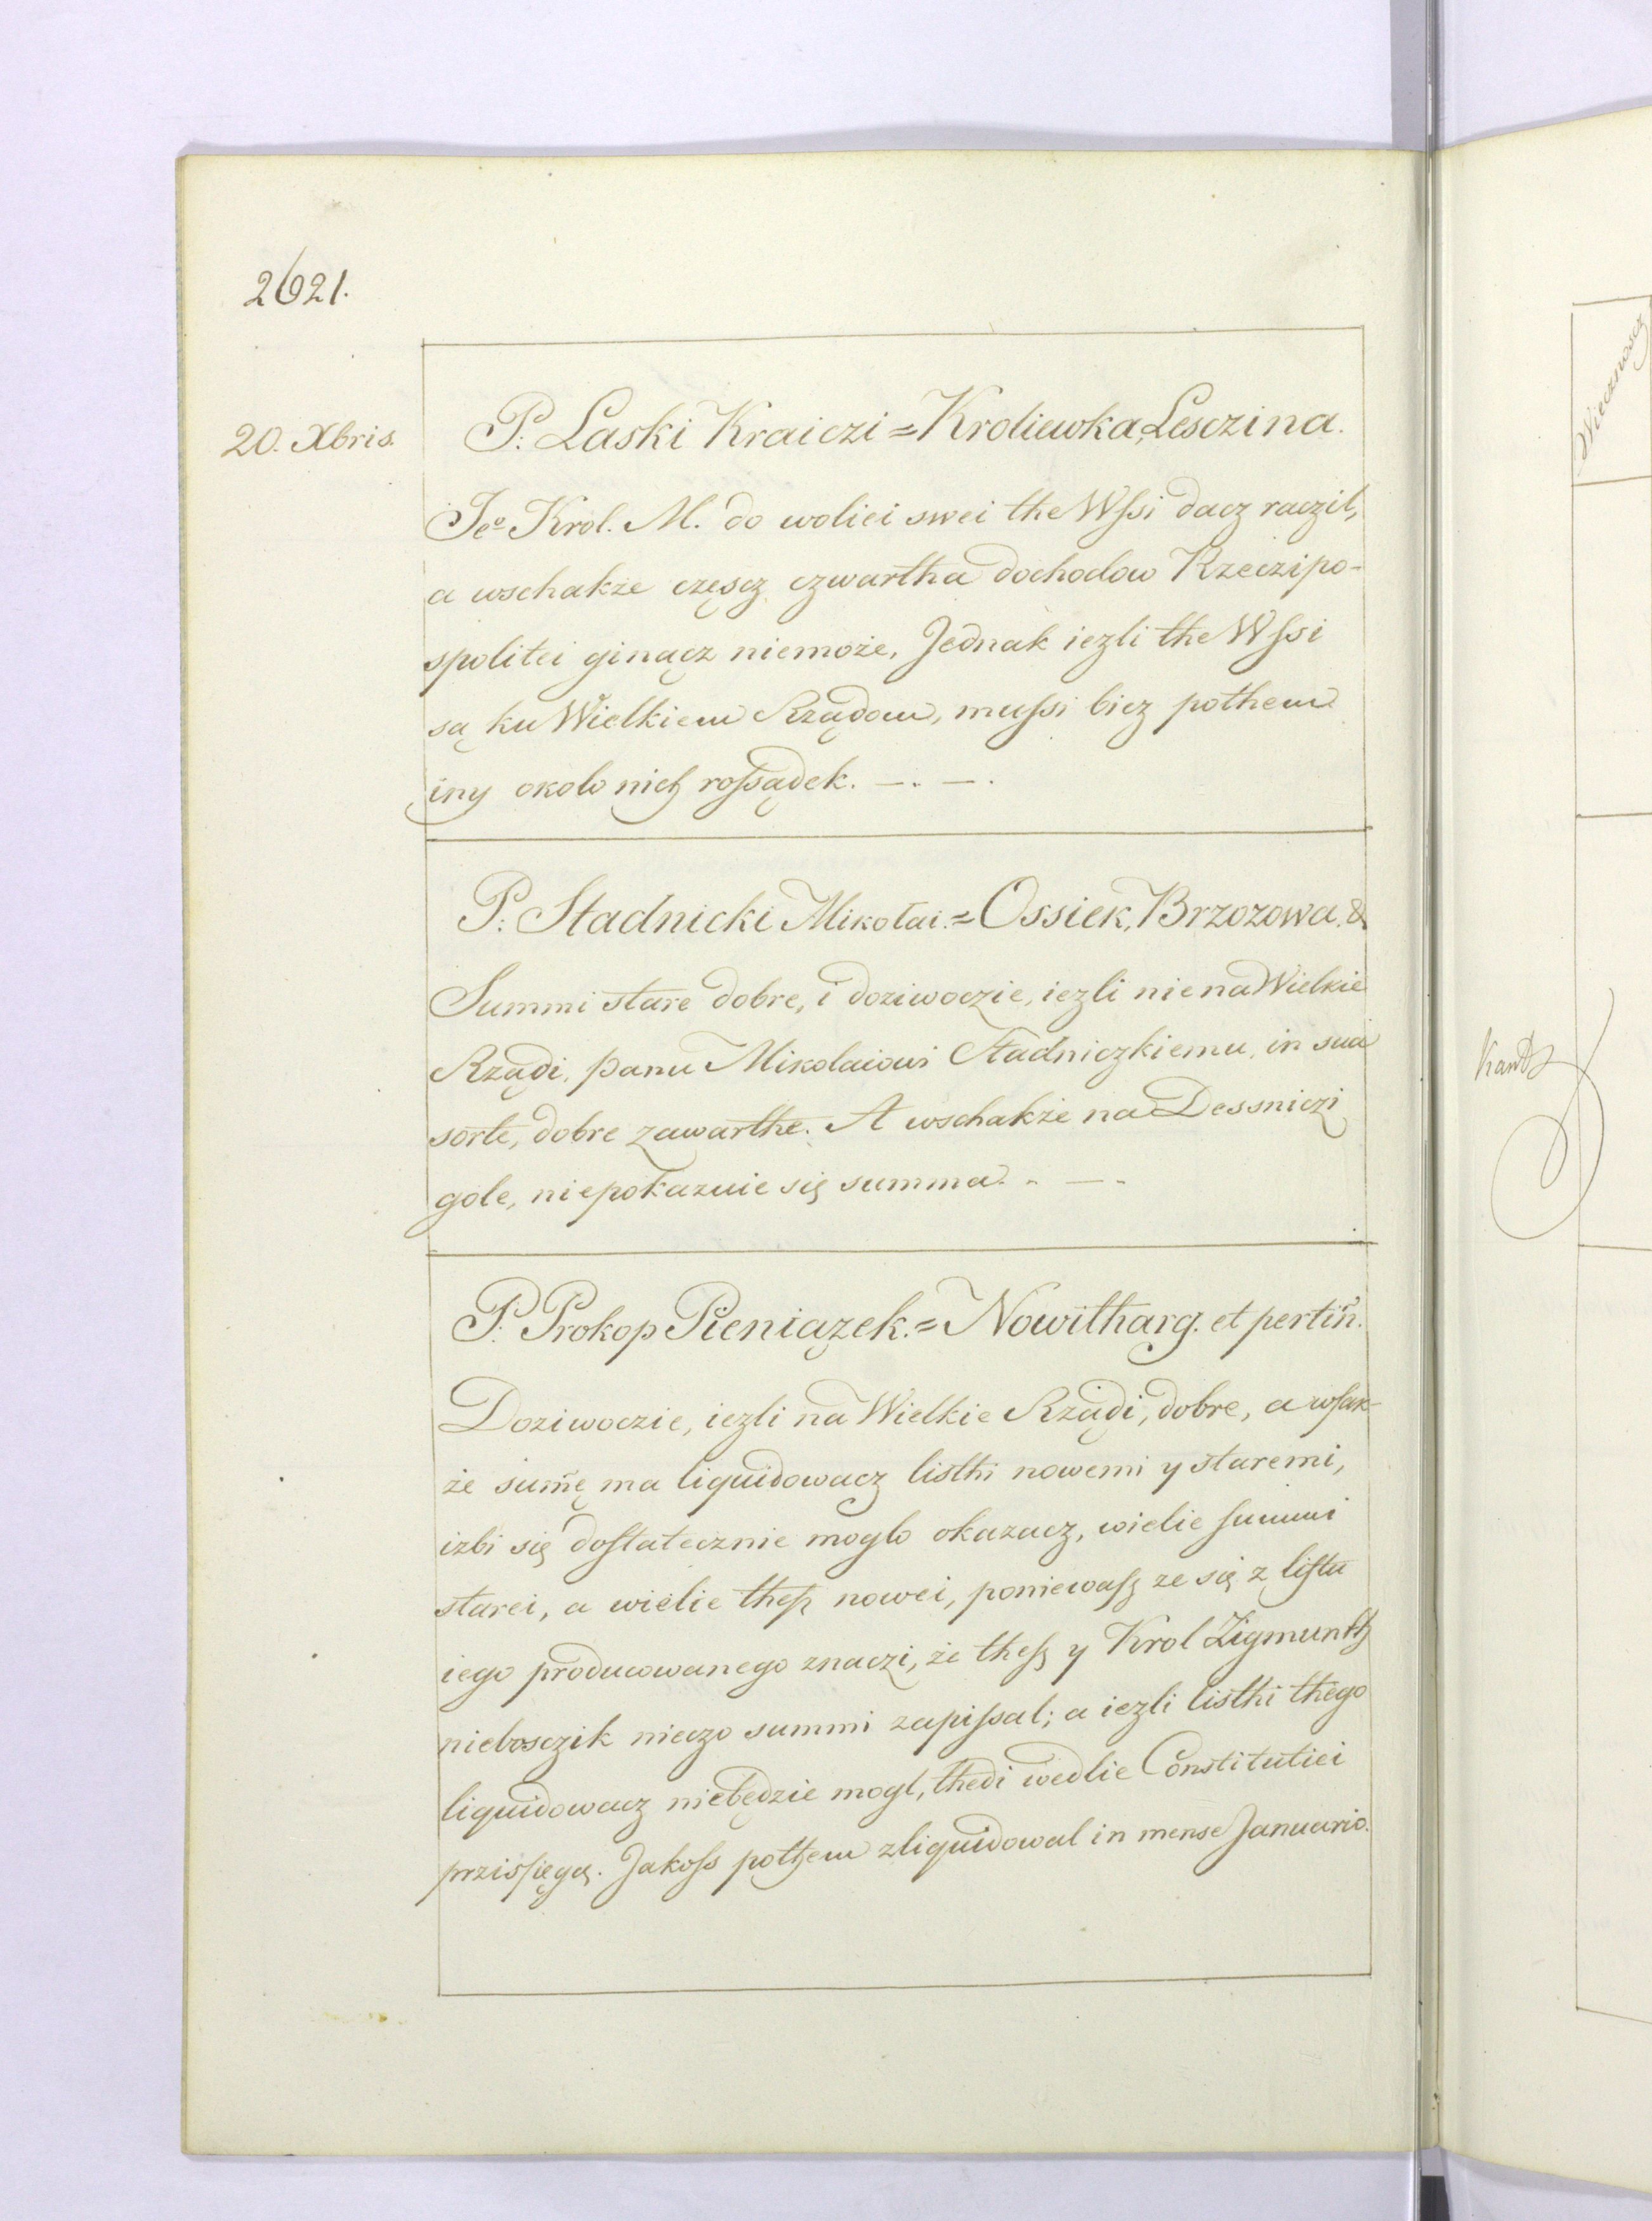 2621.
20. Xbris.
P: Laski Kraiczi = Kroliewka, Lesczina.
Jeo Krol. M. do woliei swei the Wſsi dacz raczil,
a wschakże częscz czwartha dochodow Rzeczipo-
spolitei ginącz niemoże, Jednak iezli the Wſsi
są ku Wielkiem Rządom, muſsi bicz pothem
iny okolo nich roſsądek. —. —.
P: Stadnicki Mikołai. = Ossiek, Brzozowa. &
Summi stare dobre, i doziwoczie, iezli nie na Wielkie
Rządi, panu Mikolaiowi Stadniczkiemu, in sua
sorte, dobre zawarthe. A wschakże na Dessniczi
gole, niepokazuie się summa. . — .
P: Prokop Pieniązek. = Nowitharg. et pertin̄.
Doziwoczie, iezli na Wielkie Rządi, dobre, a wſak-
że sum̄ę ma liquidowacz listhi nowemi y staremi,
izbi się doſtatecznie moglo okazacz, wielie ſummi
starei, a wielie theſz nowei, poniewaſz ze się z liſtu
iego producowanego znaczi, że theſz y Krol Zigmunth
niebosczik nieczo summi zapiſsal; a iezli listhi thego
liquidowacz niebędzie mogl, thedi wedlie Constitutiei
przisſięgą. Jakoſs pothem zliquidowal in mense Januario.
Wiecznoscz